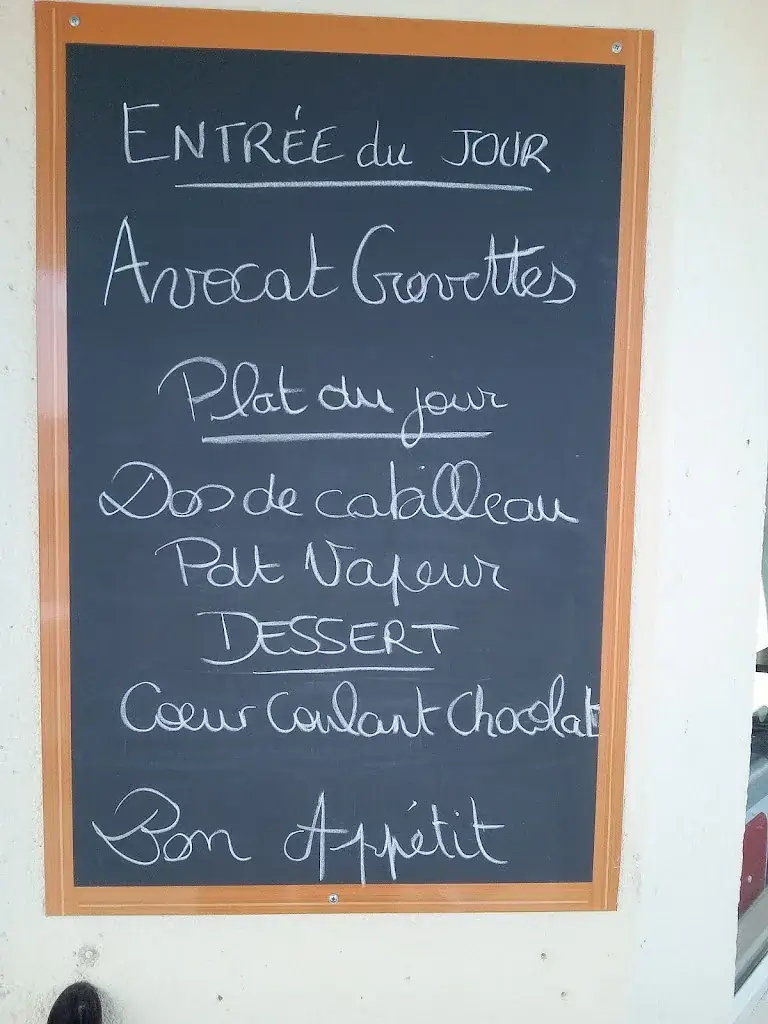 ENTRÉE du JOUR
Avocat Crevettes
Plat du jour
Dos de cabilleau
Pdt Vapeur
DESSERT
Coeur Coulant Chocolat
Bon Appétit